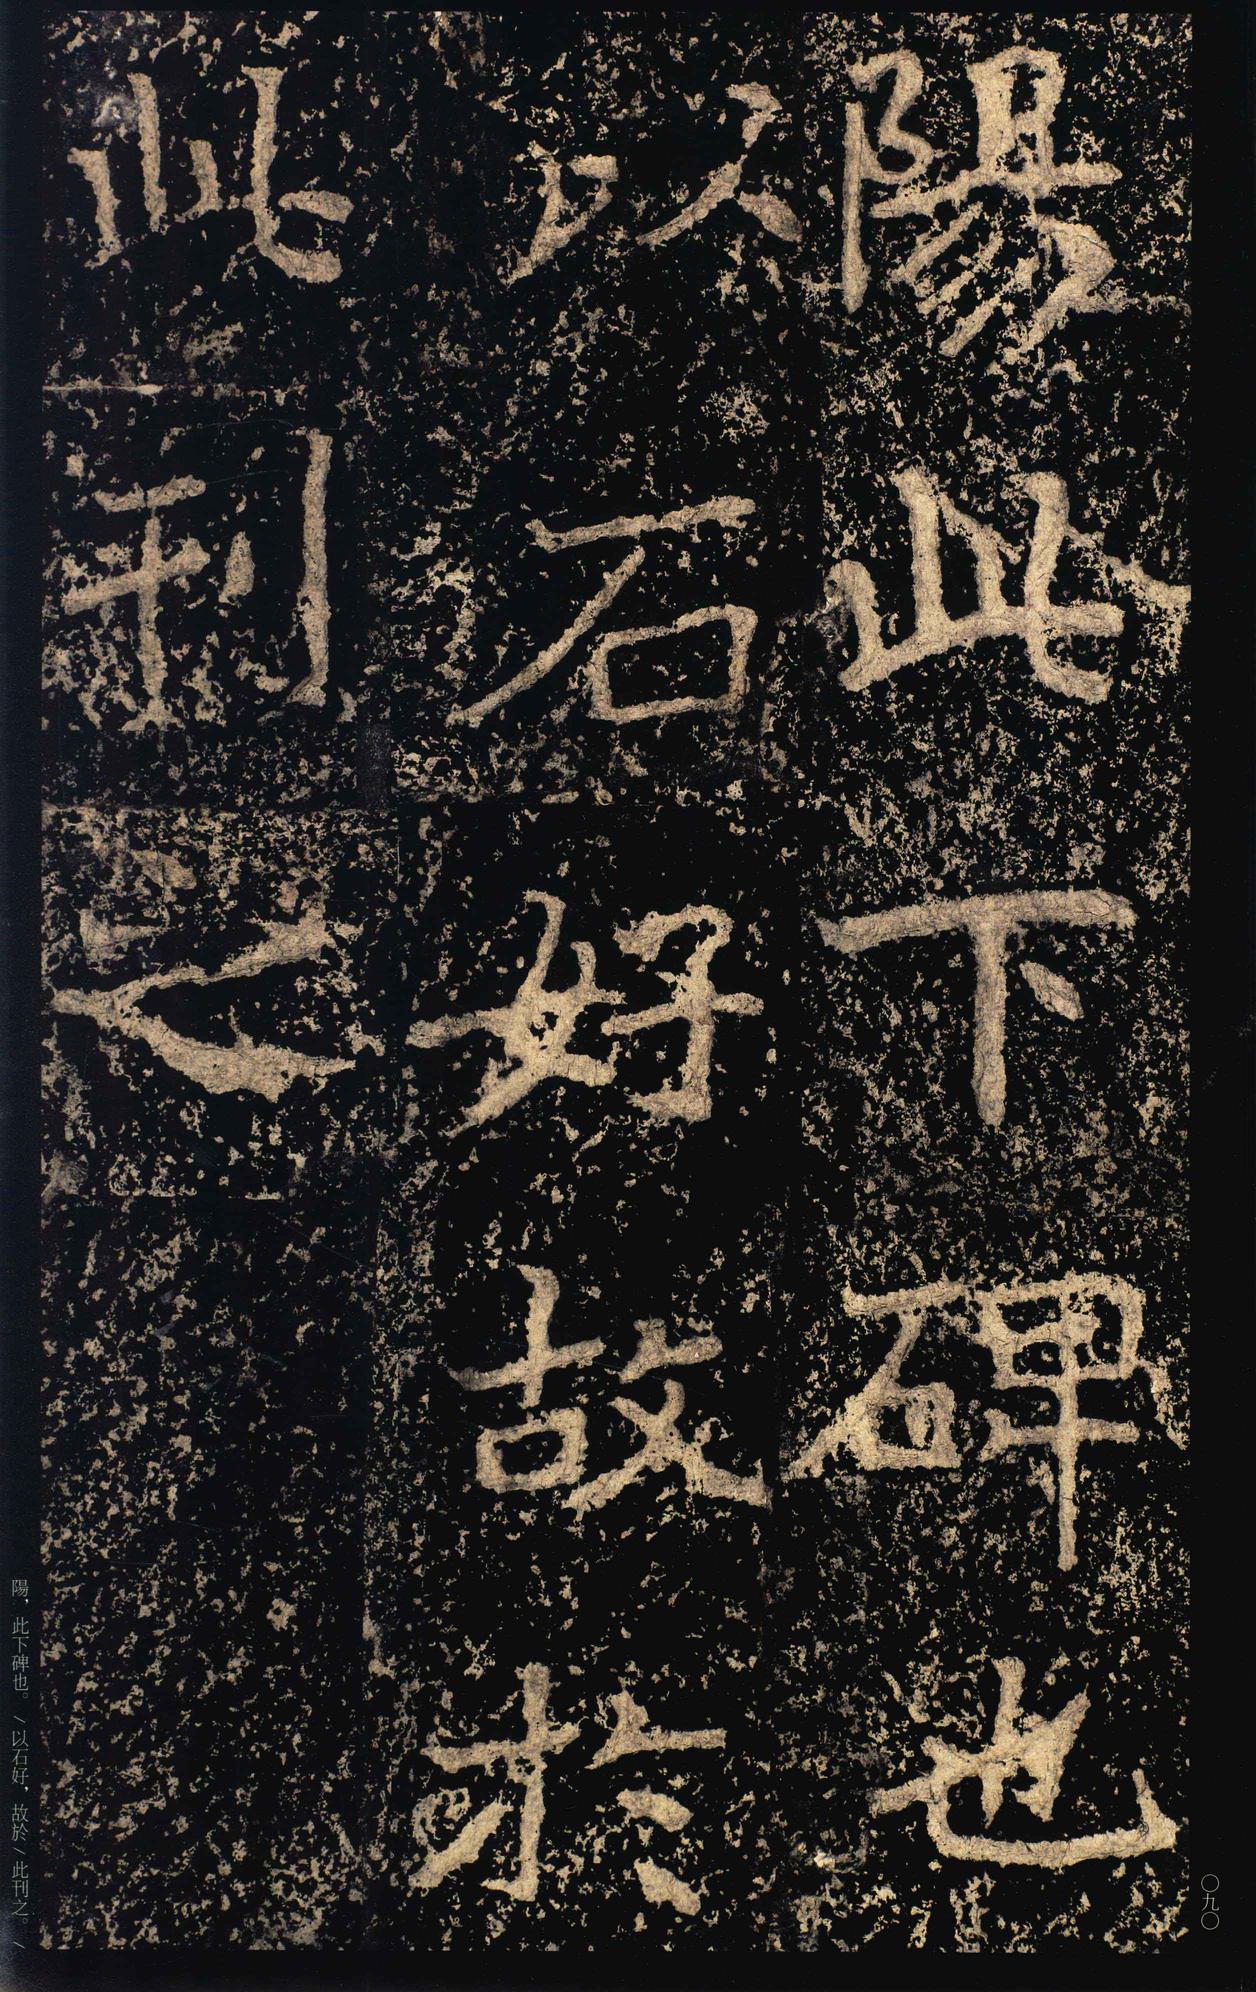 陽此下碑也
以石好故於
此刊之
〇九〇
陽，此下碑也。/以石好，故於/此刊之。/